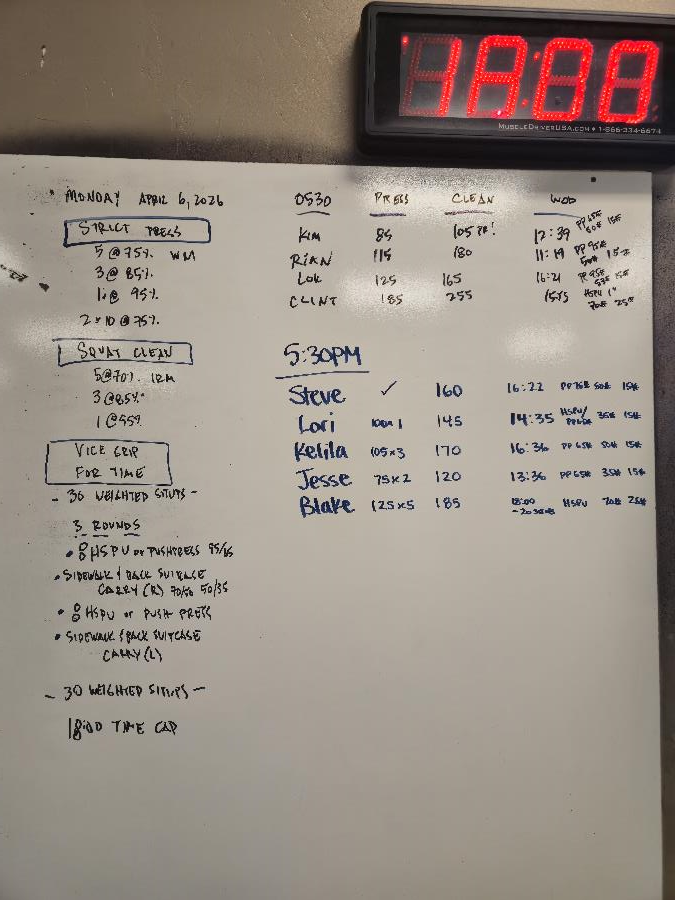 18:00
MUSCLEDRIVERUSA.COM • 1-866-334-6674
MONDAY APRIL 6, 2026
STRICT PRESS
5 @ 75% WM
3 @ 85%
1 @ 95%
2 x 10 @ 75%
SQUAT CLEAN
5@70% 1RM
3@85%
1@95%
VICE GRIP
FOR TIME
- 30 WEIGHTED SITUPS -
3 ROUNDS
• 8 HSPU or PUSHPRESS 95/65
• SIDEWALK & BACK SUITCASE
CARRY (R) 70/50 50/35
• 8 HSPU or PUSH PRESS
• SIDEWALK & BACK SUITCASE
CARRY (L)
- 30 WEIGHTED SITUPS -
18:00 TIME CAP
0530 PRESS CLEAN WOD
KIM 85 105 PR! 12:39 PP 65# 50# 15#
RIAN 115 180 11:19 PP 95#
LOK 125 165 16:21 PP 95# 15#
CLINT 185 255 HSPU 1" 70# 25#
5:30PM
Steve ✓ 160 16:22 PP 75# 50# 15#
Lori 145 14:35 HSPU/ PP65# 35# 15#
Kelila 105x3 170 16:36 PP 65# 50# 15#
Jesse 75x2 120 13:36 PP 65# 35# 15#
Blake 125x5 185 18:00 HSPU 70# 25#